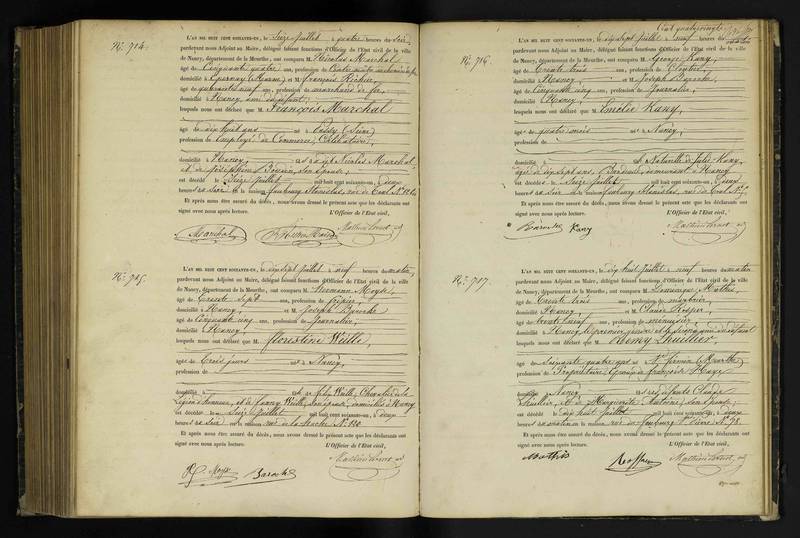 N.° 714.
L'AN MIL HUIT CENT SOIXANTE-UN, le Seize Juillet à quatre heures du Soir,
pardevant nous Adjoint au Maire, délégué faisant fonctions d'Officier de l'Etat civil de la ville
de Nancy, département de la Meurthe, ont comparu M. Nicolas Marchal
âgé de Cinquante quatre ans, profession de
domicilié à Epernay (Marne) et M. François Richier,
âgé de quarante neuf ans, profession de marchand de fer,
domicilié à Nancy, ami du défunt;
lesquels nous ont déclaré que M. François Marchal
âgé de dix huit ans né à Passy (Seine)
profession de Employé de Commerce, Célibataire,
domicilié à Nancy, fils de Nicolas Marchal,
et de Joséphine son épouse;
est décédé le Seize Juillet mil huit cent soixante-un, à deux
heures du Soir en la maison faubourg Stanislas, rue de Toul N.°
Et après nous être assuré du décès, nous avons dressé le présent acte que les déclarants ont
signé avec nous après lecture. L'Officier de l'Etat civil,
Marchal
N.° 715.
L'AN MIL HUIT CENT SOIXANTE-UN, le dix sept Juillet à neuf heures du matin,
pardevant nous Adjoint au Maire, délégué faisant fonctions d'Officier de l'Etat civil de la ville
de Nancy, département de la Meurthe, ont comparu M. Hermann Moyse
âgé de Trente Sept ans, profession de fripier,
domicilié à Nancy, et M. Joseph Baroche
âgé de Cinquante cinq ans, profession de Journalier,
domicilié à Nancy
lesquels nous ont déclaré que M. florestine Weille
âgée de Trois jours née à Nancy,
profession de
domicilié à Weille, Chevalier de la
Légion d'honneur, et de fanny Weille, son épouse, domiciliés à Nancy
est décédée le Seize Juillet mil huit cent soixante-un, à deux
heures du Soir en la maison rue de la N.° 130
Et après nous être assuré du décès, nous avons dressé le présent acte que les déclarants ont
signé avec nous après lecture. L'Officier de l'Etat civil,
H. Moyse Baroche
N.° 716.
L'AN MIL HUIT CENT SOIXANTE-UN, le dix sept Juillet à neuf heures du
pardevant nous Adjoint au Maire, délégué faisant fonctions d'Officier de l'Etat civil de la ville
de Nancy, département de la Meurthe, ont comparu M. George Kany,
âgé de Trente trois ans, profession de
domicilié à Nancy, et M. Joseph Baroche
âgé de Cinquante cinq ans, profession de Journalier
domicilié à Nancy,
lesquels nous ont déclaré que M. Emélie Kany,
âgée de quatre mois née à Nancy,
profession de
domicilié à Naturelle de Julie Kany,
âgée de dix sept ans, Brodeuse, demeurant à Nancy
est décédée le Seize Juillet mil huit cent soixante-un, à deux
heures du Soir en la maison faubourg Stanislas, rue de Toul N.°
Et après nous être assuré du décès, nous avons dressé le présent acte que les déclarants ont
signé avec nous après lecture. L'Officier de l'Etat civil,
Baroche Kany
N.° 717.
L'AN MIL HUIT CENT SOIXANTE-UN, le dix huit Juillet à neuf heures du matin
pardevant nous Adjoint au Maire, délégué faisant fonctions d'Officier de l'Etat civil de la ville
de Nancy, département de la Meurthe, ont comparu M. Dominique Mathis,
âgé de Trente trois ans, profession de marbrier
domicilié à Nancy et M.
âgé de trente neuf ans, profession de menuisier
domicilié à Nancy, le premier gendre et le second ami du défunt
lesquels nous ont déclaré que M. Remy Thuillier,
âgé de Soixante quatre ans né à (Meurthe)
profession de Propriétaire, Epoux de françoise Haye
domicilié à Nancy fils des défunts Claude
Thuillier, et de Marguerite son Epouse;
est décédé le dix huit Juillet mil huit cent soixante-un, à deux
heures du matin en la maison, rue du faubourg S.t Pierre N.° 78.
Et après nous être assuré du décès, nous avons dressé le présent acte que les déclarants ont
signé avec nous après lecture. L'Officier de l'Etat civil,
Mathis